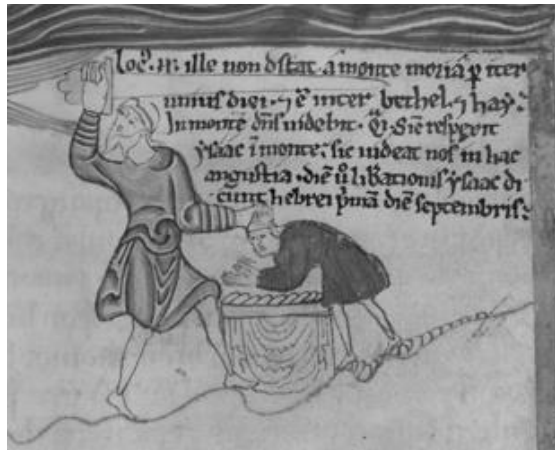 loc. ille non distat a monte moria p iter
unius diei ⁊ ē inter bethel ⁊ hay.
In monte dn̄s uidebit. Qͥ. Sic̄ respexit
ysaac ī monte: sic uideat nos in hac
angustia. diē ů libationis ysaac di
cunt hebrei pͥmā diē septembris.